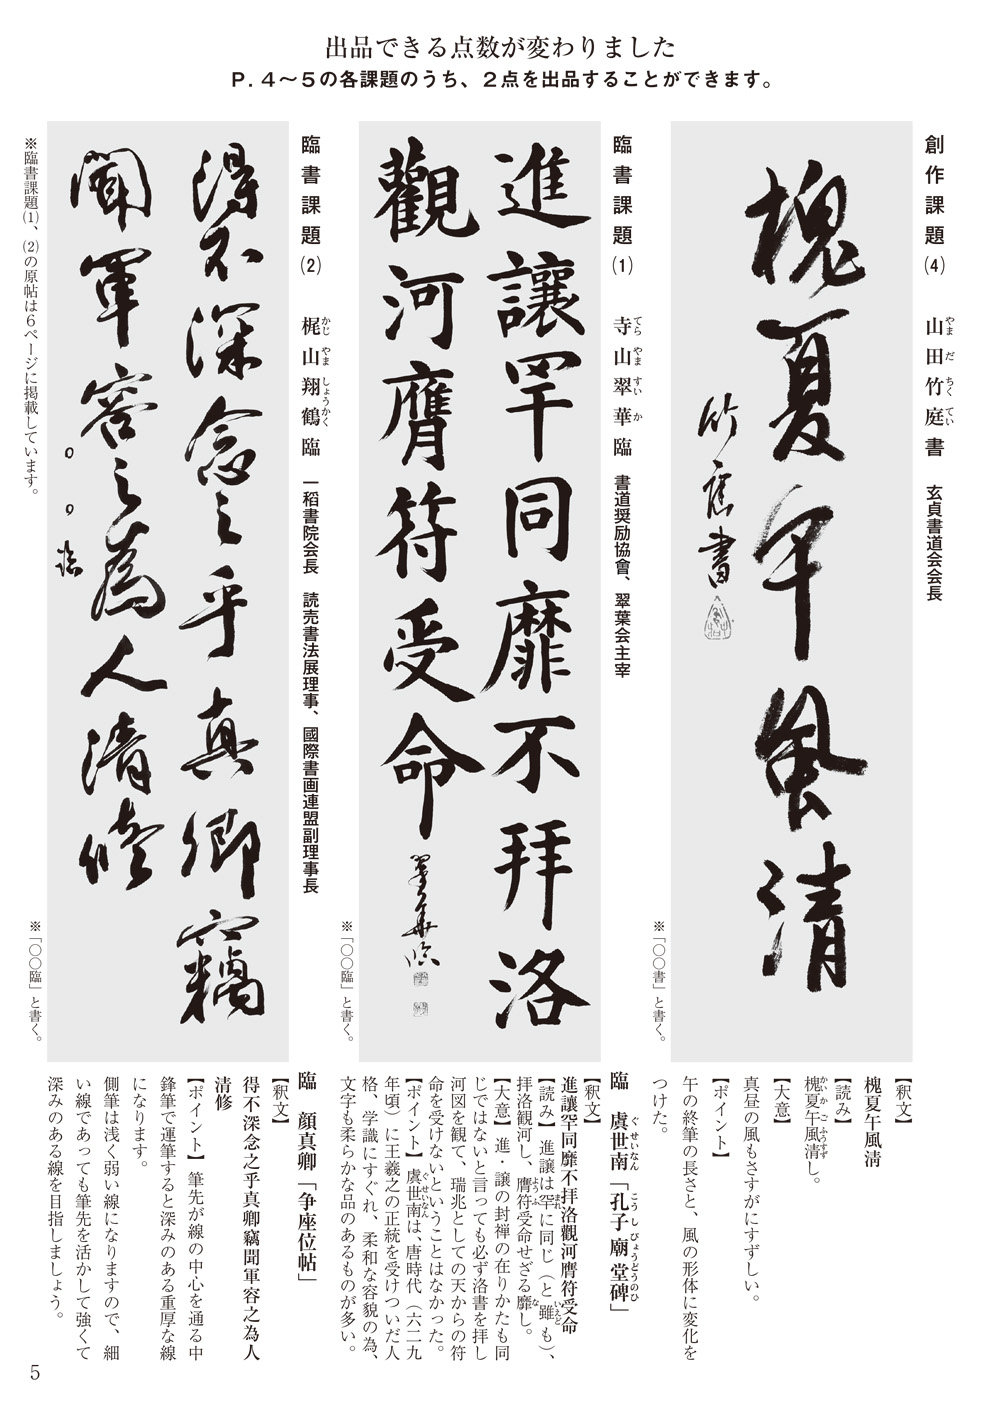 出品できる点数が変わりました
P.4〜5の各課題のうち、2点を出品することができます。
創作課題(4) 山田竹庭書 玄貞書道会会長
やまだちくてい
槐夏午風清
竹庭書
※「〇〇書」と書く。
【釈文】
槐夏午風清
【読み】
槐夏午風清し。
かいかごふうすず
【大意】
真昼の風もさすがにすずしい。
【ポイント】
午の終筆の長さと、風の形体に変化を
つけた。
臨書課題(1) 寺山翠華臨 書道奨励協會、翠葉会主宰
てらやますいか
進讓罕同靡不拝洛
觀河膺符受命
翠華臨
※「〇〇臨」と書く。
臨 虞世南「孔子廟堂碑」
ぐせいなん こうしびょうどうのひ
【釈文】
進讓罕同靡不拝洛觀河膺符受命
【読み】進譲は罕に同じ(と雖も)、
まれ いえど
拝洛観河し、膺符受命せざる靡し。
ようふ な
【大意】進・譲の封禅の在りかたも同
じではないと言っても必ず洛書を拝し
河図を観て、瑞兆としての天からの符
命を受けないということはなかった。
【ポイント】虞世南は、唐時代(六二九
ぐせいなん
年頃)に王羲之の正統を受けついだ人
格、学識にすぐれ、柔和な容貌の為、
文字も柔らかな品のあるものが多い。
臨書課題(2) 梶山翔鶴臨 一稻書院会長 読売書法展理事、國際書画連盟副理事長
かじやましょうかく
得不深念之乎真卿竊
聞軍容之為人清修
〇〇臨
※「〇〇臨」と書く。
※臨書課題(1)、(2)の原帖は6ページに掲載しています。
臨 顔真卿「争座位帖」
【釈文】
得不深念之乎真卿竊聞軍容之為人
清修
【ポイント】筆先が線の中心を通る中
鋒筆で運筆すると深みのある重厚な線
になります。
側筆は浅く弱い線になりますので、細
い線であっても筆先を活かして強くて
深みのある線を目指しましょう。
5